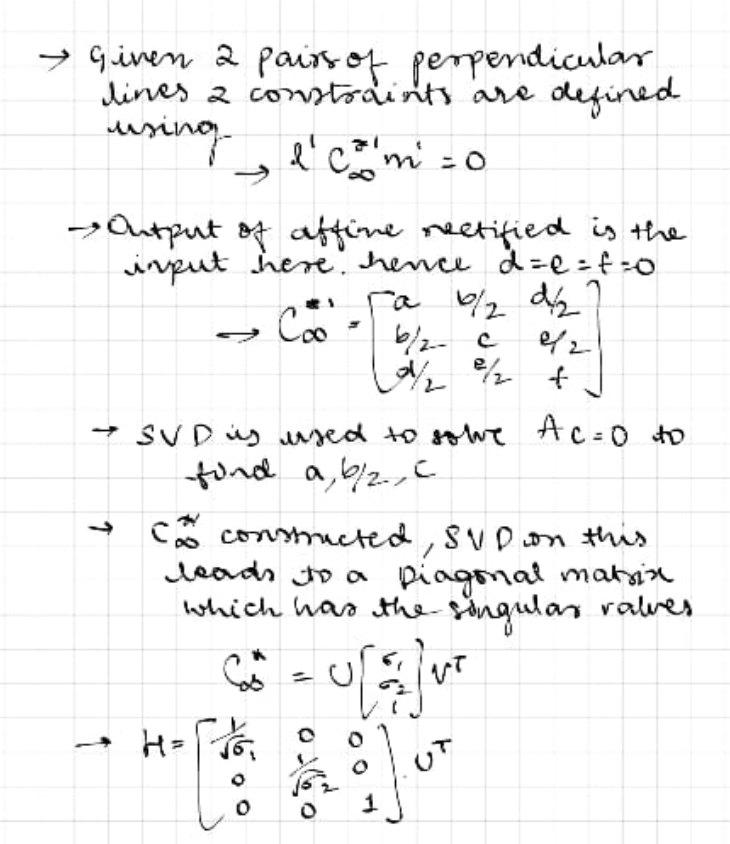 → Given 2 pairs of perpendicular
lines 2 constraints are defined
using
→ l' C∞*' m' = 0
→ Output of affine rectified is the
input here. hence d=e=f=0
→ C∞*' = [a b/2 d/2
b/2 c e/2
d/2 e/2 f]
→ SVD is used to solve Ac=0 to
find a, b/2, c
→ C∞*' constructed, SVD on this
leads to a Diagonal matrix
which has the singular values
C∞* = U [σ₁ σ₂ 1] Vᵀ
→ H = [1/√σ₁ 0 0
0 1/√σ₂ 0
0 0 1] . Uᵀ